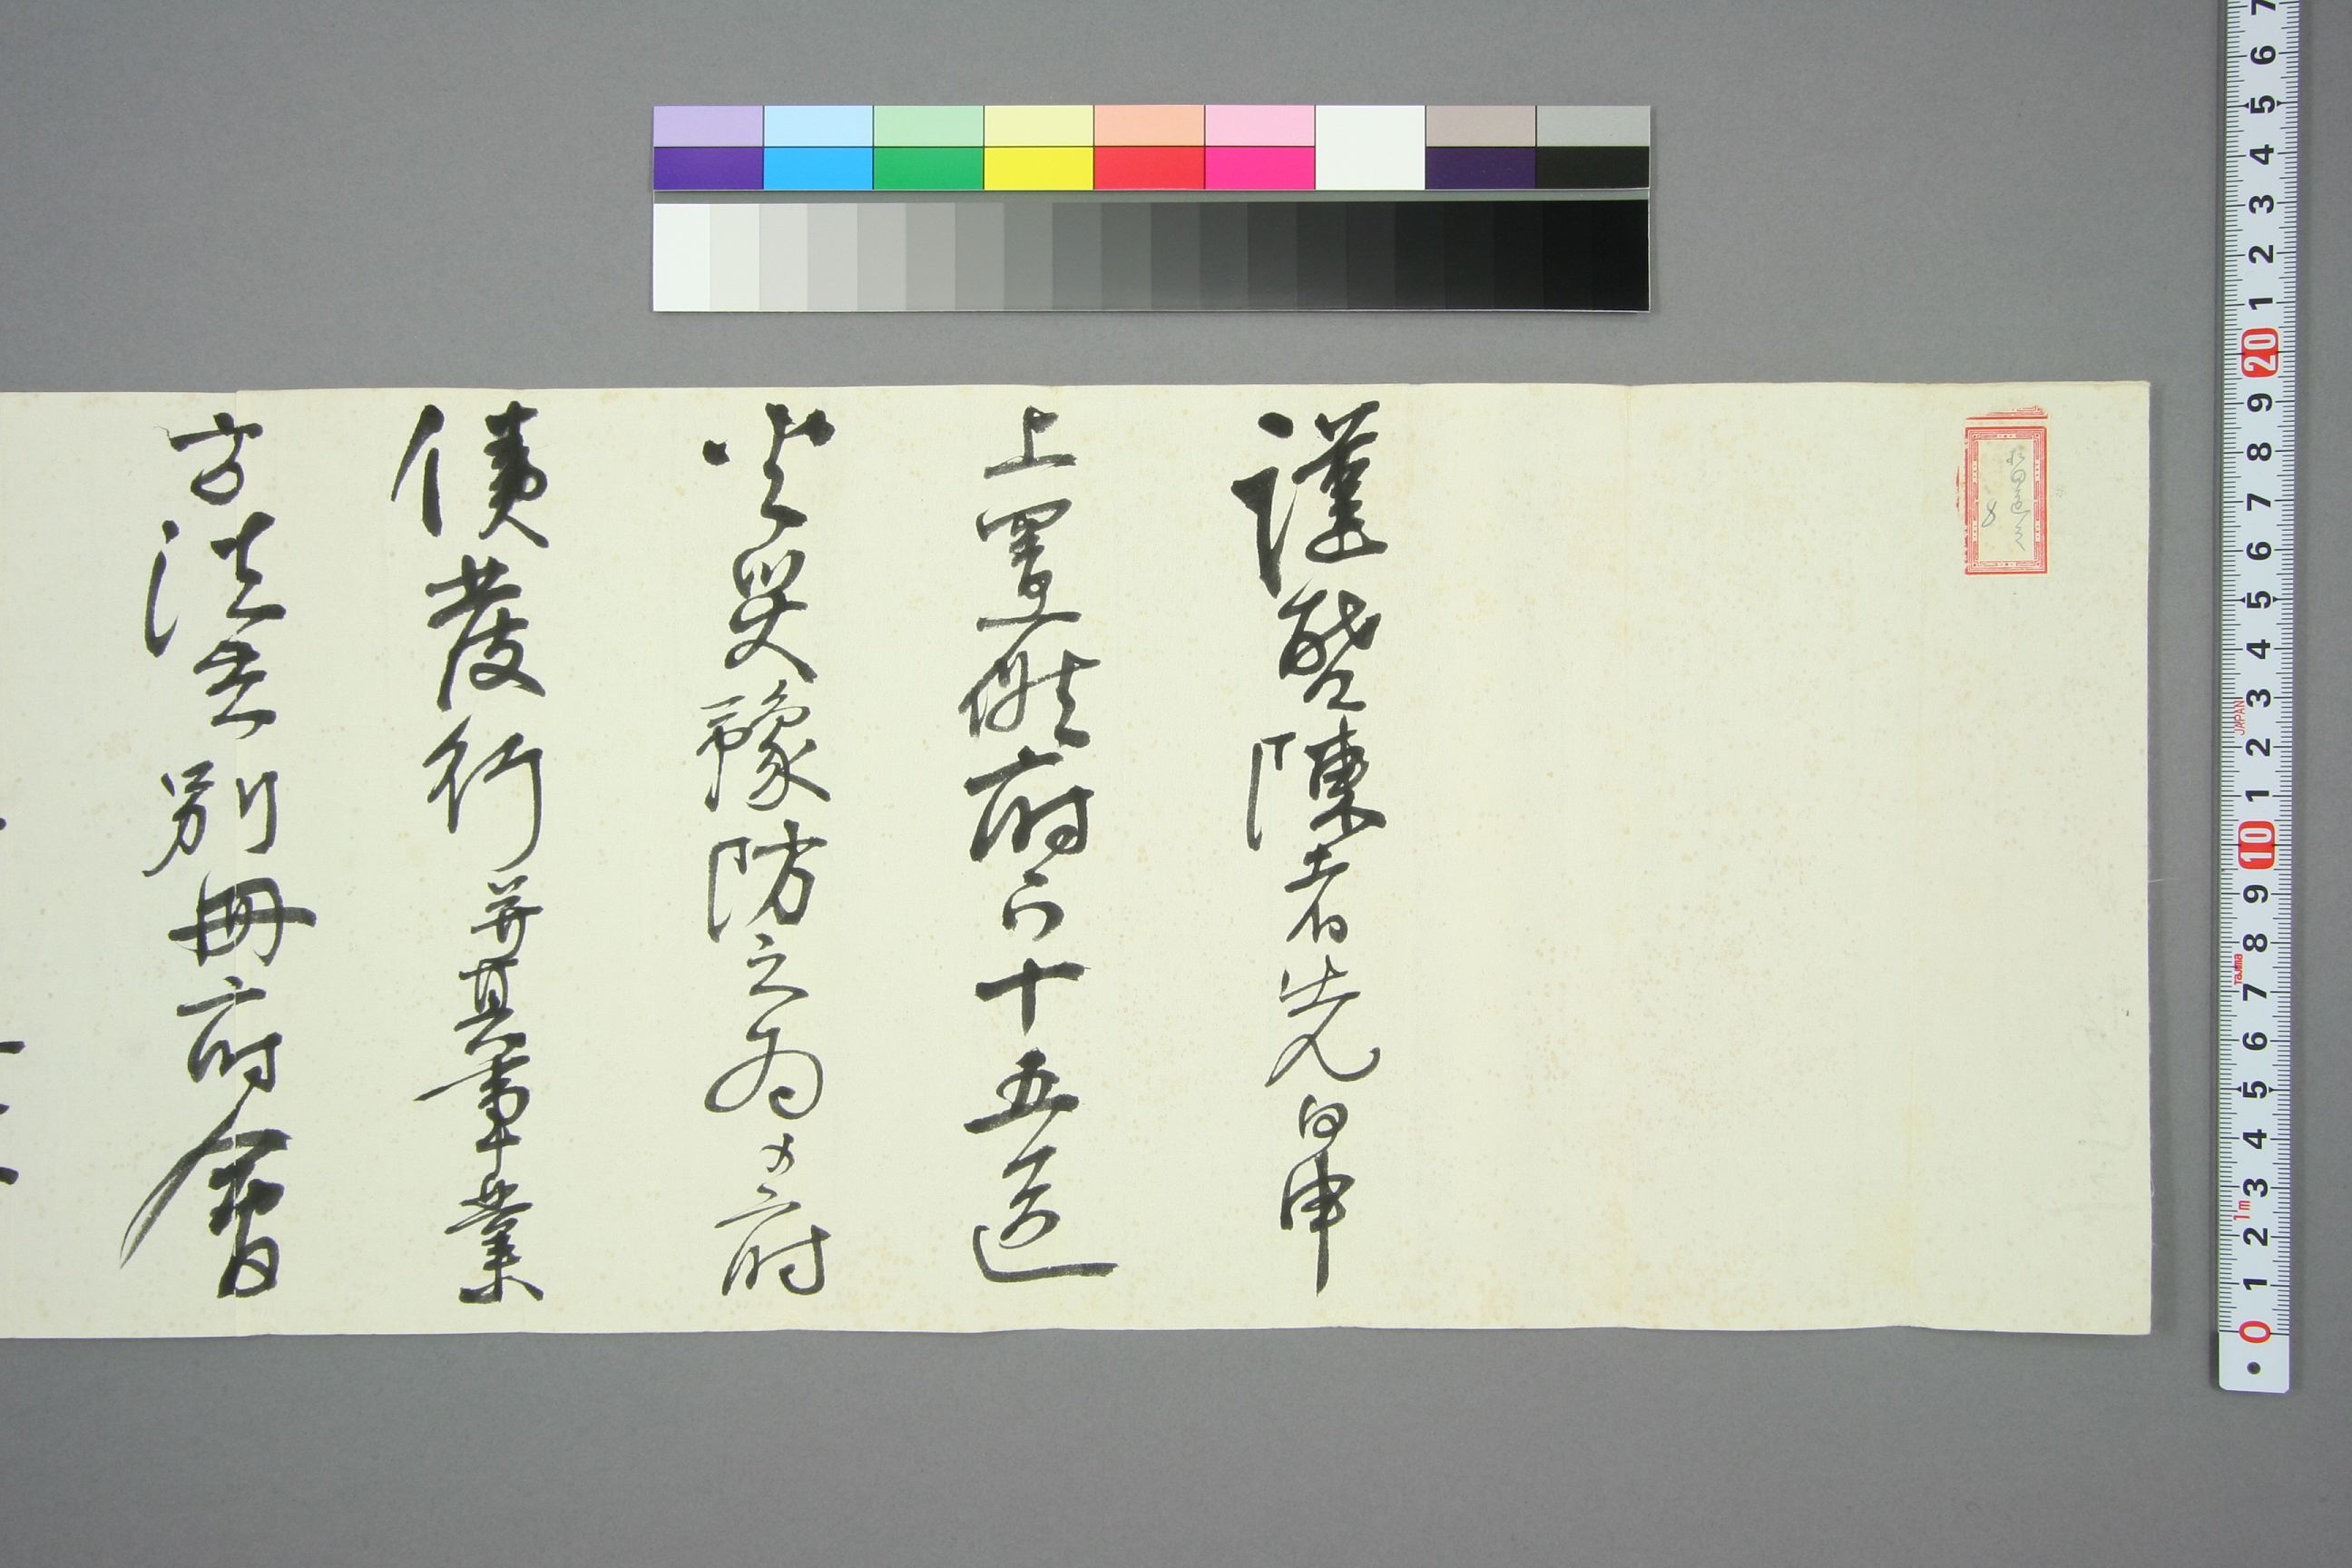 松田道之
8
謹啓陳者先日申
上置候府下十五区
火災豫防之為メ府
債發行并其事業
方法書別冊府會
7
6
5
4
3
2
1
20
9
8
7
6
5
4
3
JAPAN
2
1
10
9
8
Tajima
7
6
5
4
3
1m
2
1
0